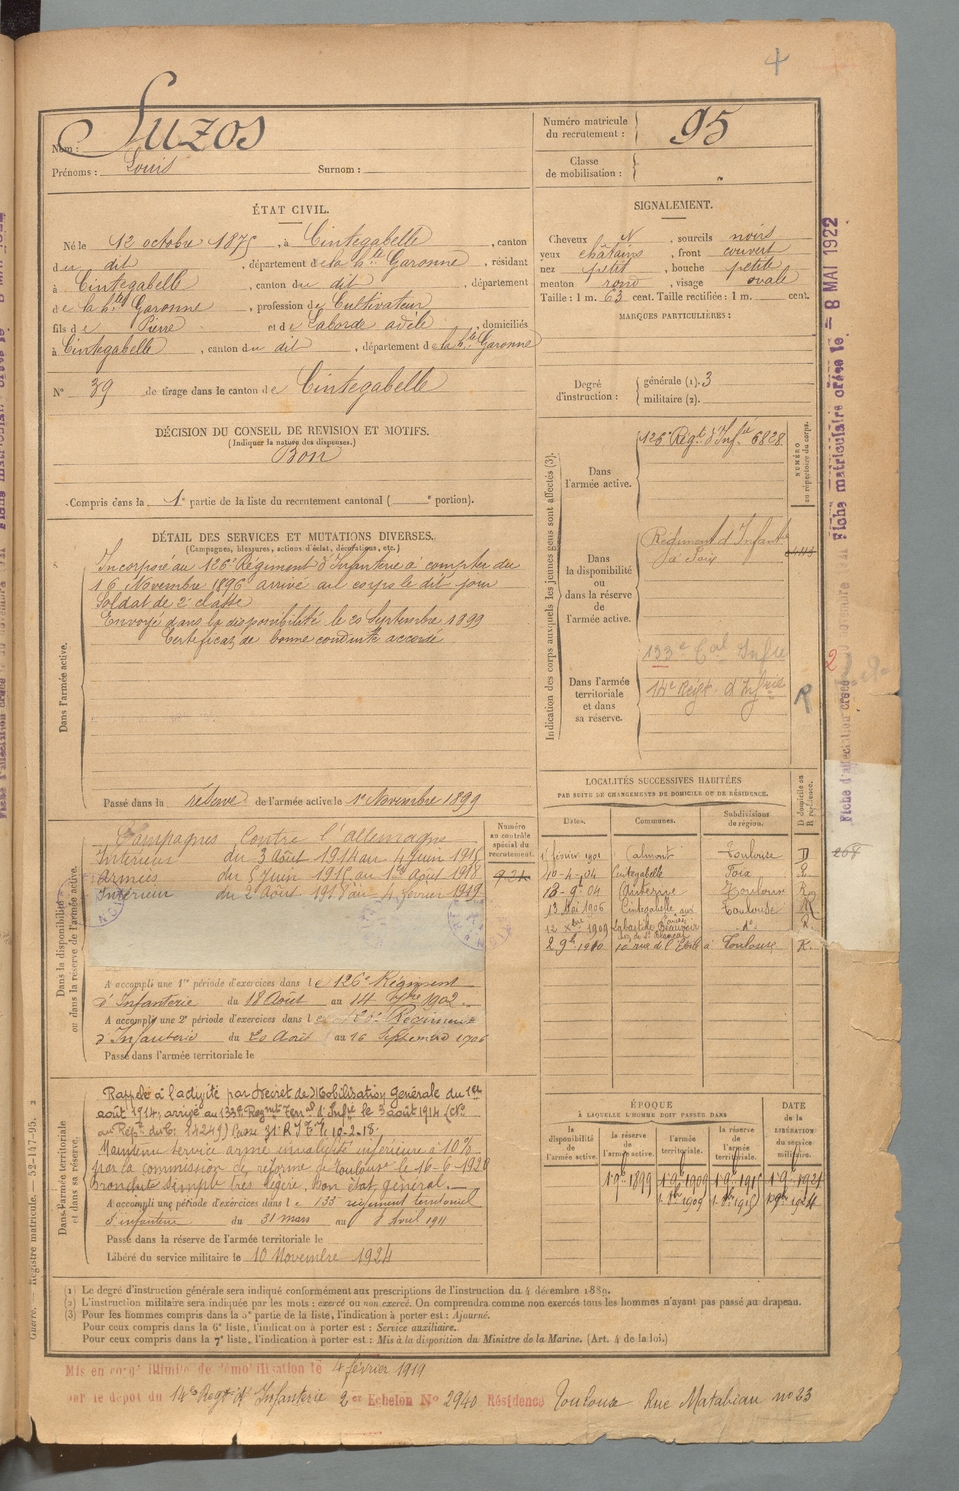 4
Nom : Suzos
Prénoms : Louis Surnom :
Numéro matricule du recrutement : 95
Classe de mobilisation :
ÉTAT CIVIL.
Né le 12 octobre 1875, à Cintegabelle, canton
du dit, département de la hte Garonne, résidant
à Cintegabelle, canton du dit, département
de la hte Garonne, profession de Cultivateur
fils de Pierre et de Laborde adèle, domiciliés
à Cintegabelle, canton du dit, département de la hte Garonne
N° 39 de tirage dans le canton de Cintegabelle
SIGNALEMENT.
Cheveux N, sourcils noirs
yeux châtains, front couvert
nez petit, bouche petite
menton rond, visage ovale
Taille : 1 m. 63 cent. Taille rectifiée : 1 m. cent.
MARQUES PARTICULIÈRES :
Degré d'instruction : générale (1). 3
militaire (2).
DÉCISION DU CONSEIL DE REVISION ET MOTIFS.
(Indiquer la nature des dispenses.)
Bon
Compris dans la 1e partie de la liste du recrutement cantonal ( e portion).
DÉTAIL DES SERVICES ET MUTATIONS DIVERSES.
(Campagnes, blessures, actions d'éclat, décorations, etc.)
Dans l'armée active.
Incorporé au 126e Régiment d'Infanterie à compter du
16 Novembre 1896 arrivé au corps le dit jour
Soldat de 2e classe
Envoyé dans la disponibilité le 20 Septembre 1899
Certificat de bonne conduite accordé
Passé dans la réserve de l'armée active le 1er Novembre 1899
Indication des corps auxquels les jeunes gens sont affectés (3).
NUMÉRO au répertoire du corps.
Dans l'armée active.
126e Régt d'Infie 6828
Dans la disponibilité ou dans la réserve de l'armée active.
Régiment d'Infanterie
Dans l'armée territoriale et dans sa réserve.
133e Eal Infie
14e Régt d'Infrie
R
Dans la disponibilité ou dans la réserve de l'armée active.
Numéro au contrôle spécial du recrutement.
Campagnes Contre l'allemagne
Intérieur du 3 Août 1914 au 4 Juin 1915
Armées du 5 Juin 1915 au 1er Août 1918
Intérieur du 2 Août 1918 au 4 février 1919
A accompli une 1re période d'exercices dans le 126e Régiment
d'Infanterie du 18 Août au 14 7bre 1902
A accompli une 2e période d'exercices dans le Régiment
d'Infanterie du 20 Août au 16 Septembre 1906
Passé dans l'armée territoriale le
LOCALITÉS SUCCESSIVES HABITÉES
PAR SUITE DE CHANGEMENTS DE DOMICILE OU DE RÉSIDENCE.
Dates. Communes. Subdivisions de région. D domicile ou R résidence.
1 février 1901 Calmont Toulouse D
10-4-04 Cintegabelle Foix R
13-9-04 Auterive Toulouse R
13 Mai 1906 Cintegabelle Toulouse R
12 Xbre 1909 Labastide Beauvoir
29bre 1910 rue de l'Etoile à Toulouse R.
Dans l'armée territoriale et dans sa réserve.
Rappelé à l'activité par décret de Mobilisation Générale du 1er
août 1914, arrivé au 133e Regmt Terral d'Infie le 3 août 1914 (No
au Rept du C. 24249) Passé 31e R.I.T. le 10-2-18.
Maintenu service armé invalidité inférieure à 10%
par la commission de réforme de Toulouse le 16-6-1920
Bronchite simple très légère, bon état général.
A accompli une période d'exercices dans le 133 régiment territorial
d'infanterie du 31 mars au 8 Avril 1911
Passé dans la réserve de l'armée territoriale le
Libéré du service militaire le 10 Novembre 1924
ÉPOQUE
À LAQUELLE L'HOMME DOIT PASSER DANS
la disponibilité de l'armée active. la réserve de l'armée active. l'armée territoriale. la réserve de l'armée territoriale.
DATE de la LIBÉRATION du service militaire.
1 9bre 1899 1 9bre 1909 1 9bre 1915 1 9bre 1921
1 Xbre 1909 1 Xbre 1915 10 9bre 1924
(1) Le degré d'instruction générale sera indiqué conformément aux prescriptions de l'instruction du 4 décembre 1889.
(2) L'instruction militaire sera indiquée par les mots : exercé ou non exercé. On comprendra comme non exercés tous les hommes n'ayant pas passé au drapeau.
(3) Pour les hommes compris dans la 5e partie de la liste, l'indication à porter est : Ajourné.
Pour ceux compris dans la 6e liste, l'indication à porter est : Service auxiliaire.
Pour ceux compris dans la 7e liste, l'indication à porter est : Mis à la disposition du Ministre de la Marine. (Art. 4 de la loi.)
Mis en congé illimité de démobilisation le 4 février 1919
par le dépôt du 14e Regt d'Infanterie 2er Echelon No 2940 Résidence Toulouse Rue Matabiau no 23
Guerre. — Registre matricule. — 52-147-95.
Fiche matriculaire créée le 8 MAI 1922